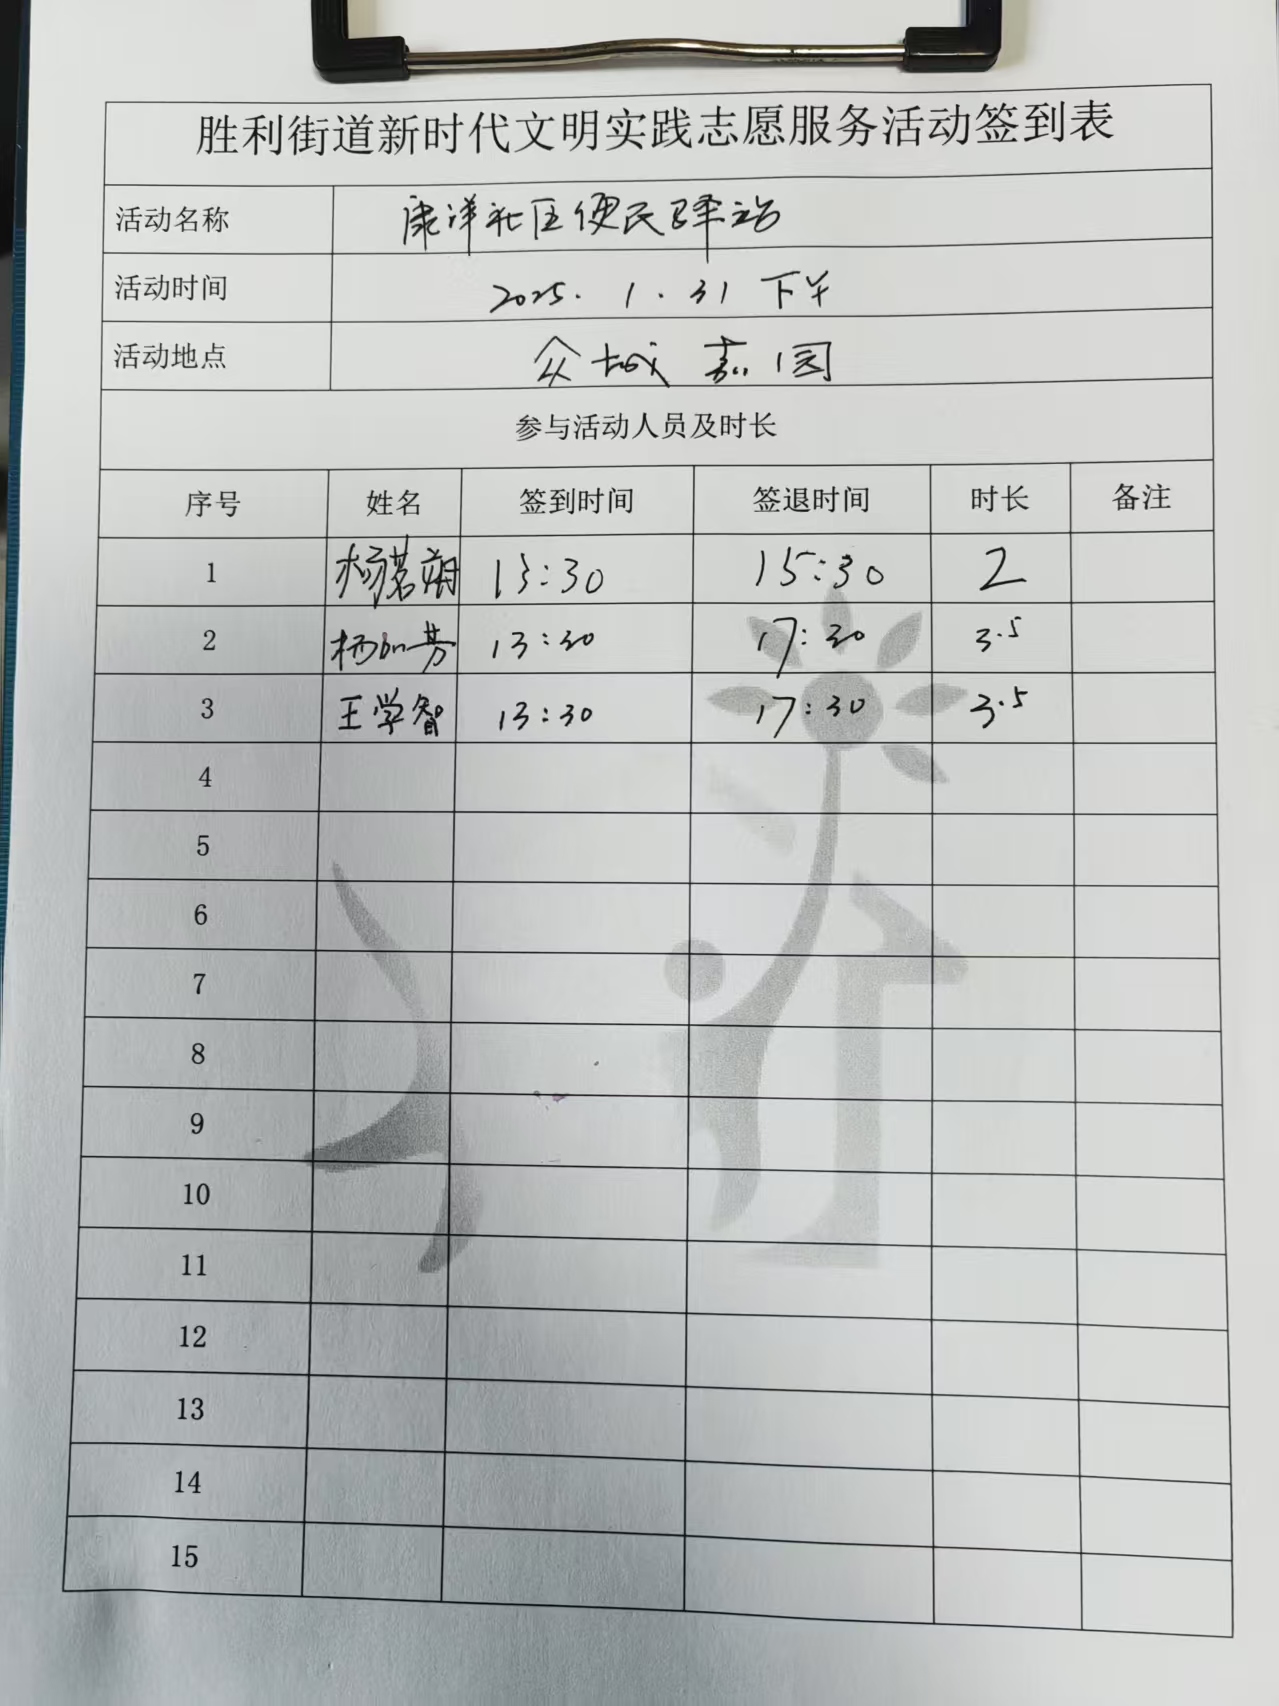 胜利街道新时代文明实践志愿服务活动签到表
活动名称 康洋社区便民驿站
活动时间 2025.1.31 下午
活动地点 众城嘉园
参与活动人员及时长
序号 姓名 签到时间 签退时间 时长 备注
1 杨茗翔 13:30 15:30 2
2 杨如芳 13:30 17:30 3.5
3 王学智 13:30 17:30 3.5
4
5
6
7
8
9
10
11
12
13
14
15